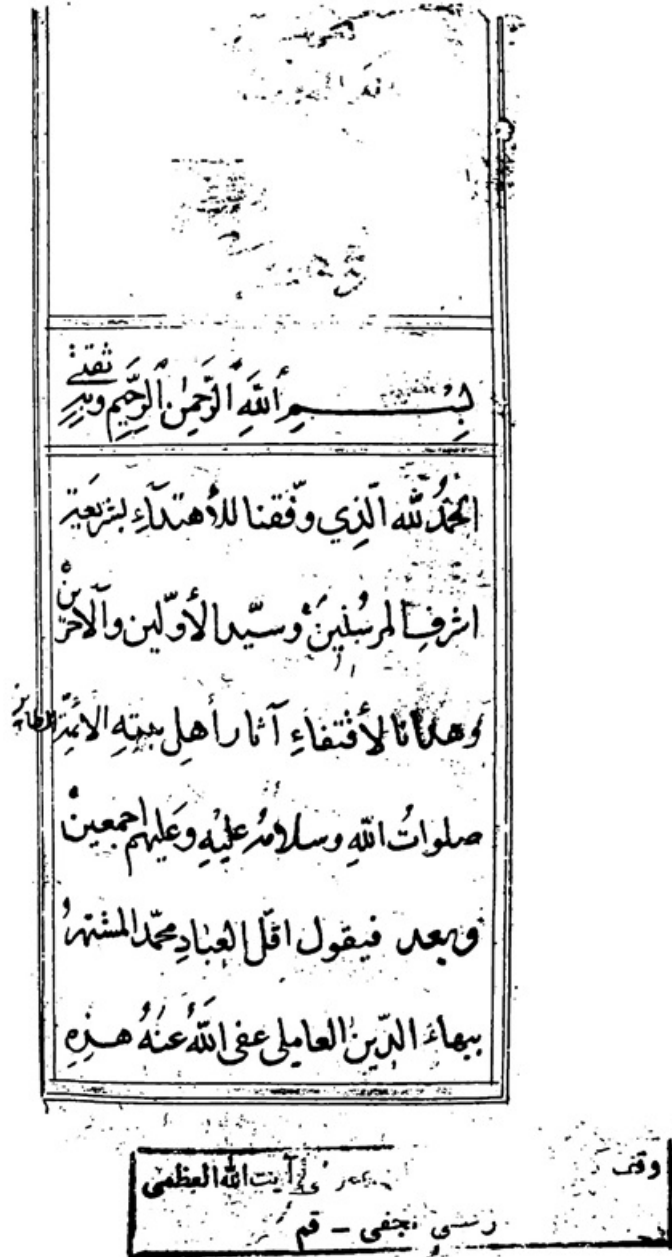 بِسْمِ ٱللّٰهِ ٱلرَّحْمٰنِ ٱلرَّحِيمِ وبه ثقتي
الحَمْدُ لله الّذِي وفّقنا للأهتدآءِ بشريعة
اشرفِ المرسَلينَ وسيّد الأوّلين والآخرين
وهدانا لأقتفاءِ آثار أهلِ بيتهِ الائمّة الطاهرين
صلواتُ اللهِ وسلامُه عليْهِ وعَليهم اجمعين
وبعد فيقول اقلّ العِبادِ محمّد المشتهرُ
ببهاء الدّين العاملي عفى اللّهُ عنهُ هذِهِ
وقف
آيت الله العظمى
نجفى - قم